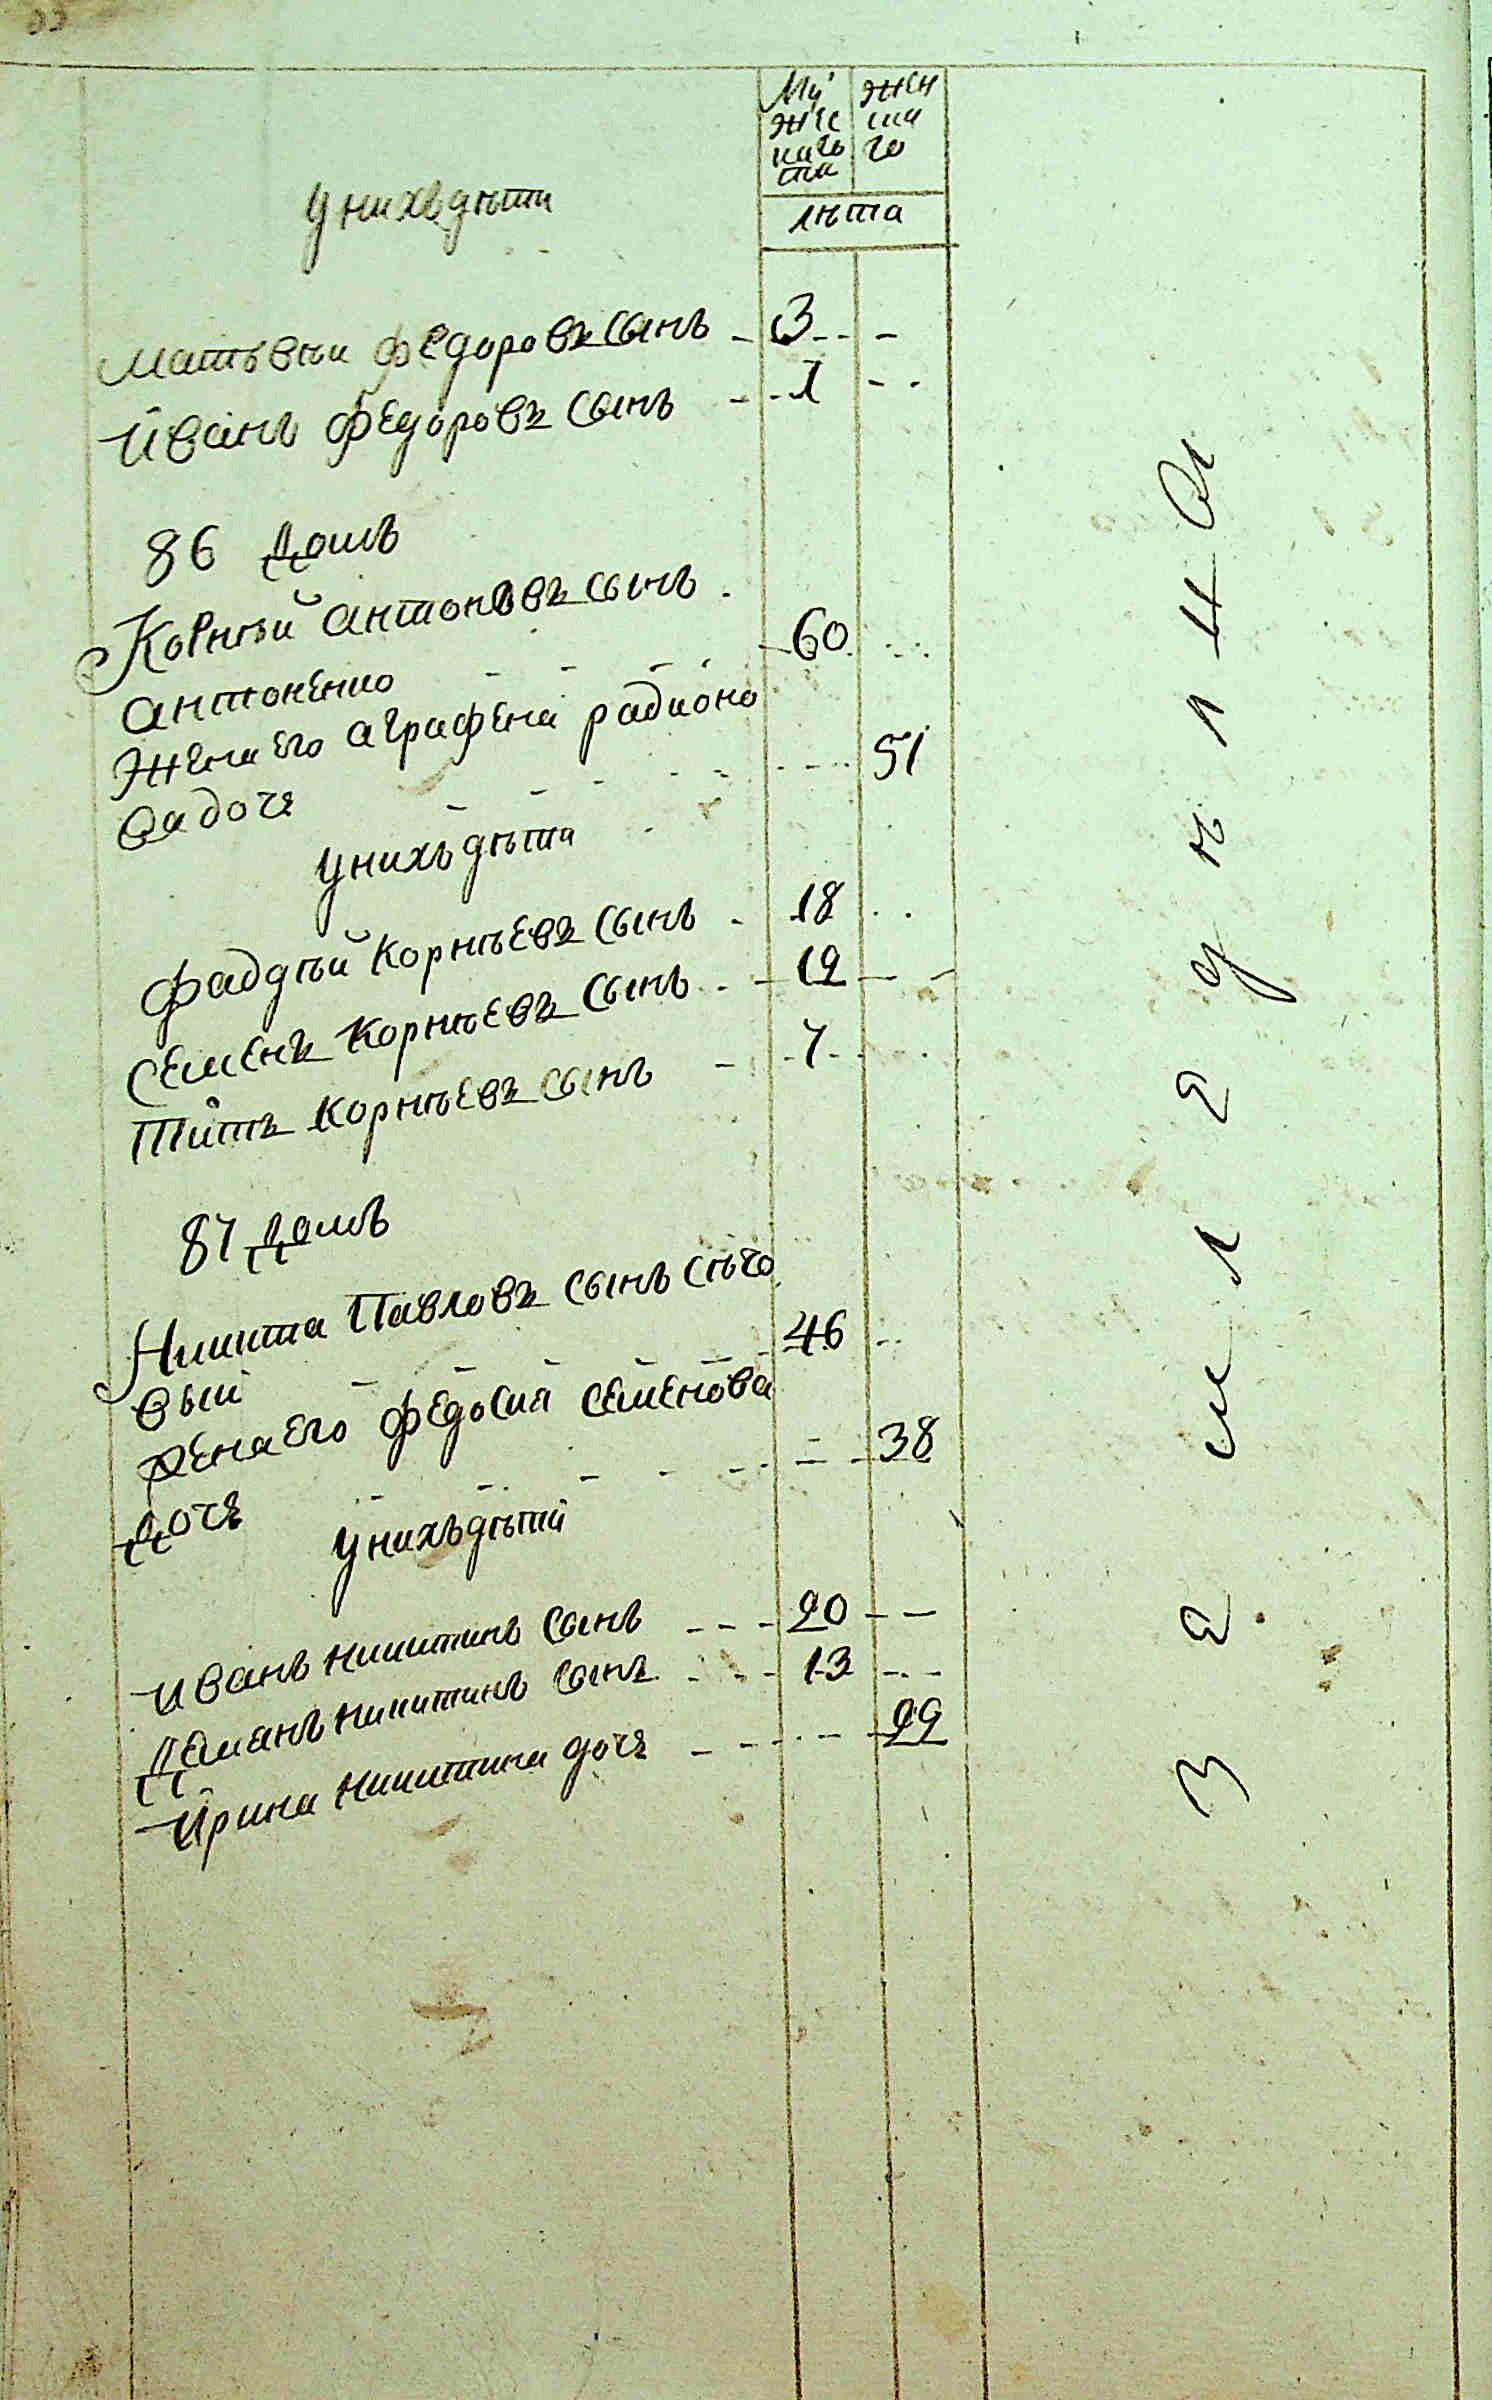 Му
жес
каго
пола
Жен
ска
го
лѣта
у нихъ дѣти
Матѣвѣй Федоровъ сынъ 3
Иванъ Федоровъ сынъ 1
86 домъ
Корнѣй Антоновъ сынъ
Антоненко 60
Жена его Аграфена Радионо
ва дочь 51
у нихъ дѣти
Фаддѣй Корнѣевъ сынъ 18
Семенъ Корнѣевъ сынъ 12
Титъ Корнѣевъ сынъ 7
87 домъ
Никита Павловъ сынъ Сѣчо
вый 46
Жена его Федосия Семенова
дочь 38
у нихъ дѣти
Иванъ Никитинъ сынъ 20
Демянъ Никитинъ сынъ 13
Ирина Никитина дочь 22
Земледѣлцы